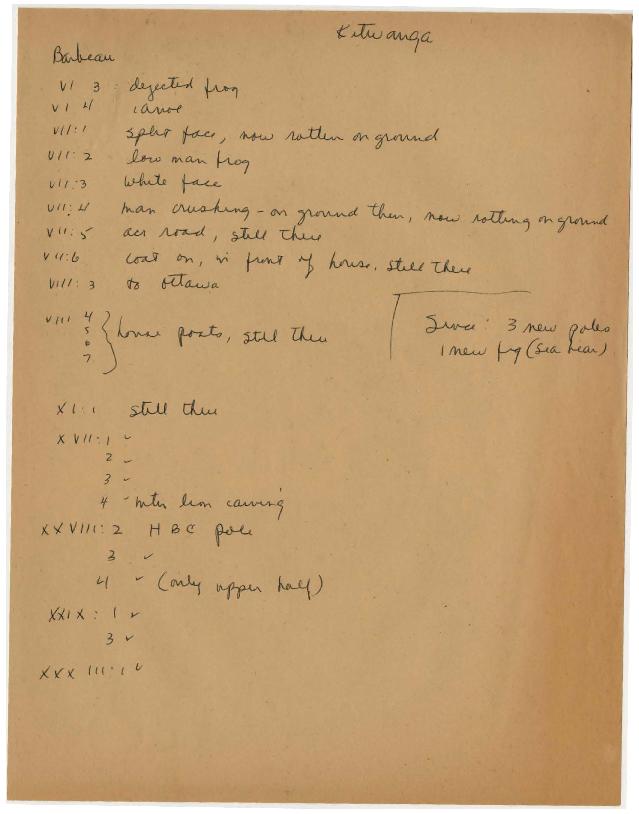 Kitwanga
Barbeau
VI 3 : dejected frog
VI 4 canoe
VII:1 split face, now rotten on ground
VII:2 low man frog
VII:3 white face
VII:4 man crushing - on ground then, now rotting on ground
VII:5 acr road, still there
VII:6 coat on, in front of house, still there
VIII:3 to Ottawa
VIII 4
5
6
7
house posts, still there
Since: 3 new poles
1 new fig (sea bear)
XI:1 still there
XVII:1 ✓
2 ✓
3 ✓
4 ✓ mtn lion carving
XXVIII:2 HBC pole
3 ✓
4 ✓ (only upper half)
XXIX:1 ✓
3 ✓
XXXIII:1 ✓